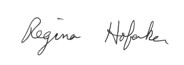 Regina Hofaker